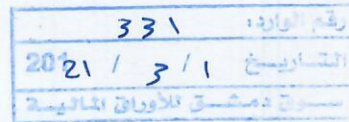 رقم الوارد: 331
التاريخ 1 / 3 / 2021
سوق دمشق للأوراق المالية